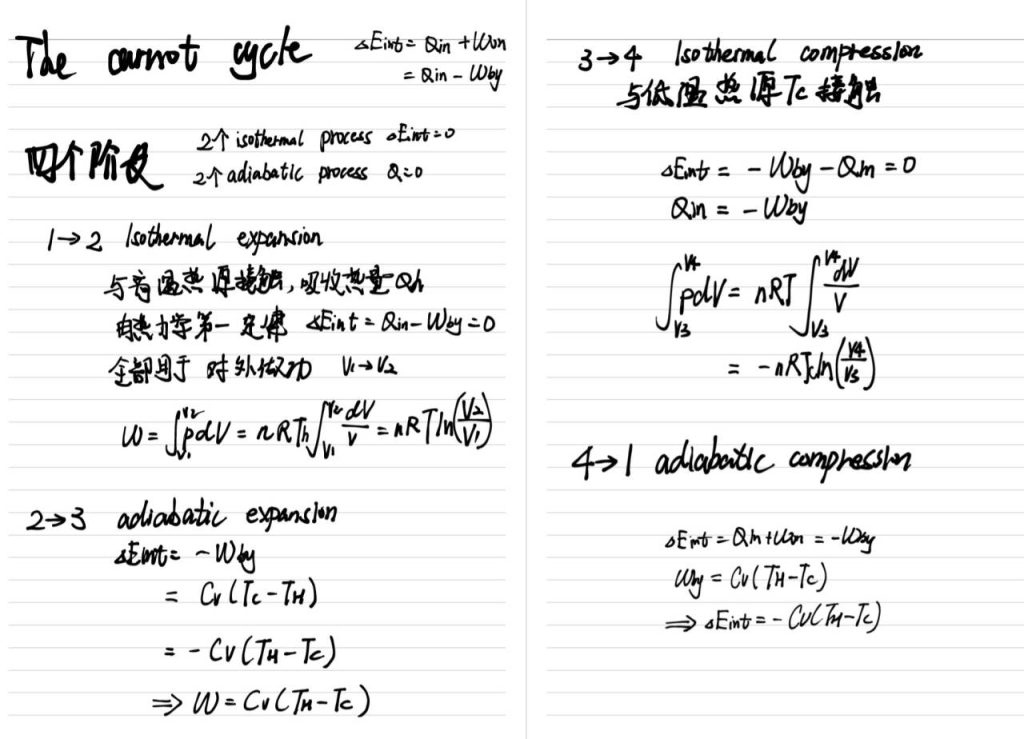 The carnot cycle
ΔEint = Qin + Won
= Qin - Wby
四个阶段
2个 isothermal process ΔEint=0
2个 adiabatic process Q=0
1→2 Isothermal expansion
与高温热源接触,吸收热量Qh
由热力学第一定律 ΔEint = Qin - Wby = 0
全部用于 对外做功 V1→V2
W = ∫_{V1}^{V2} pdV = nRTh ∫_{V1}^{V2} dV/V = nRT ln(V2/V1)
2→3 adiabatic expansion
ΔEint = -Wby
= Cv(Tc-TH)
= -Cv(TH-Tc)
⇒ W = Cv(TH-Tc)
3→4 Isothermal compression
与低温热源Tc接触
ΔEint = -Wby - Qin = 0
Qin = -Wby
∫_{V3}^{V4} pdV = nRT ∫_{V3}^{V4} dV/V
= -nRTc ln(V4/V3)
4→1 adiabatic compression
ΔEint = Qin + Won = -Wby
Wby = Cv(TH-Tc)
⇒ ΔEint = -Cv(TH-Tc)